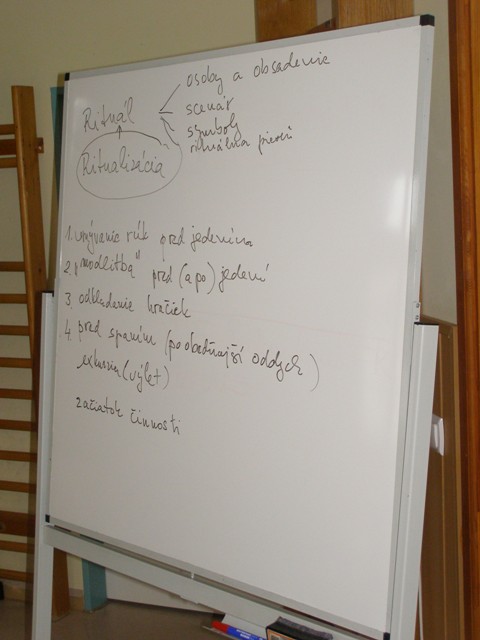 Rituál
osoby a obsadenie
scenár
symboly
rituálna pieseň
Ritualizácia
1. umývanie rúk pred jedením
2. "modlitba" pred (a po) jedení
3. odkladanie hračiek
4. pred spaním (poobedňajší oddych)
exkurzia (výlet)
začiatok činnosti